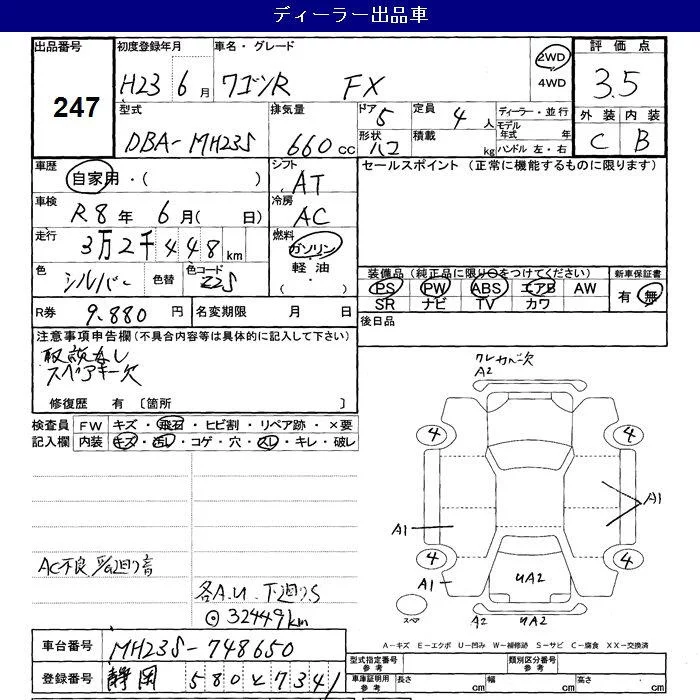 ディーラー出品車
出品番号 247
初度登録年月 H23 6月
車名・グレード ワゴンR FX
2WD 4WD
評価点 3.5
外装 内装
C B
型式 DBA-MH23S
排気量 660cc
ドア 5 定員 4人
形状 ハコ 積載 kg
ディーラー・並行
モデル年式 年
ハンドル 左・右
車歴 自家用・( )
シフト AT
セールスポイント (正常に機能するものに限ります)
車検 R8年 6月( 日)
冷房 AC
走行 3万2千448km
燃料 ガソリン・軽油・( )
色 シルバー 色替 色コード Z2S
装備品 (純正品に限り○をつけてください) 新車保証書
PS PW ABS エアB AW 有 無
SR ナビ TV カワ
R券 9,880円 名変期限 月 日
後日品
注意事項申告欄(不具合内容等は具体的に記入して下さい)
取説なし
スペアキー欠
修復歴 有 〔箇所 〕
検査員記入欄
FW キズ・飛石・ヒビ割・リペア跡・×要
内装 キズ・汚レ・コゲ・穴・スレ・キレ・破レ
AC不良
各A.U.下廻りS
32449km
A2
4 4
A1 A1
4 4
A1 UA2
スペア A2 UA2
A-キズ E-エクボ U-凹み W-補修跡 S-サビ C-腐食 XX-交換済
車台番号 MH23S-748650
型式指定番号 参考 類別区分番号 参考
登録番号 静岡 580 と 7341
車庫証明用 参考 長さ cm 幅 cm 高さ cm